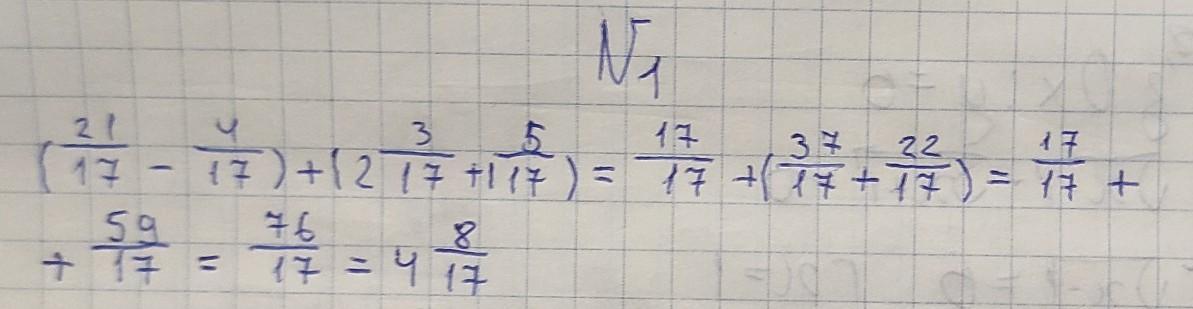 N1
(21/17 - 4/17) + (2 3/17 + 1 5/17) = 17/17 + (37/17 + 22/17) = 17/17 +
+ 59/17 = 76/17 = 4 8/17